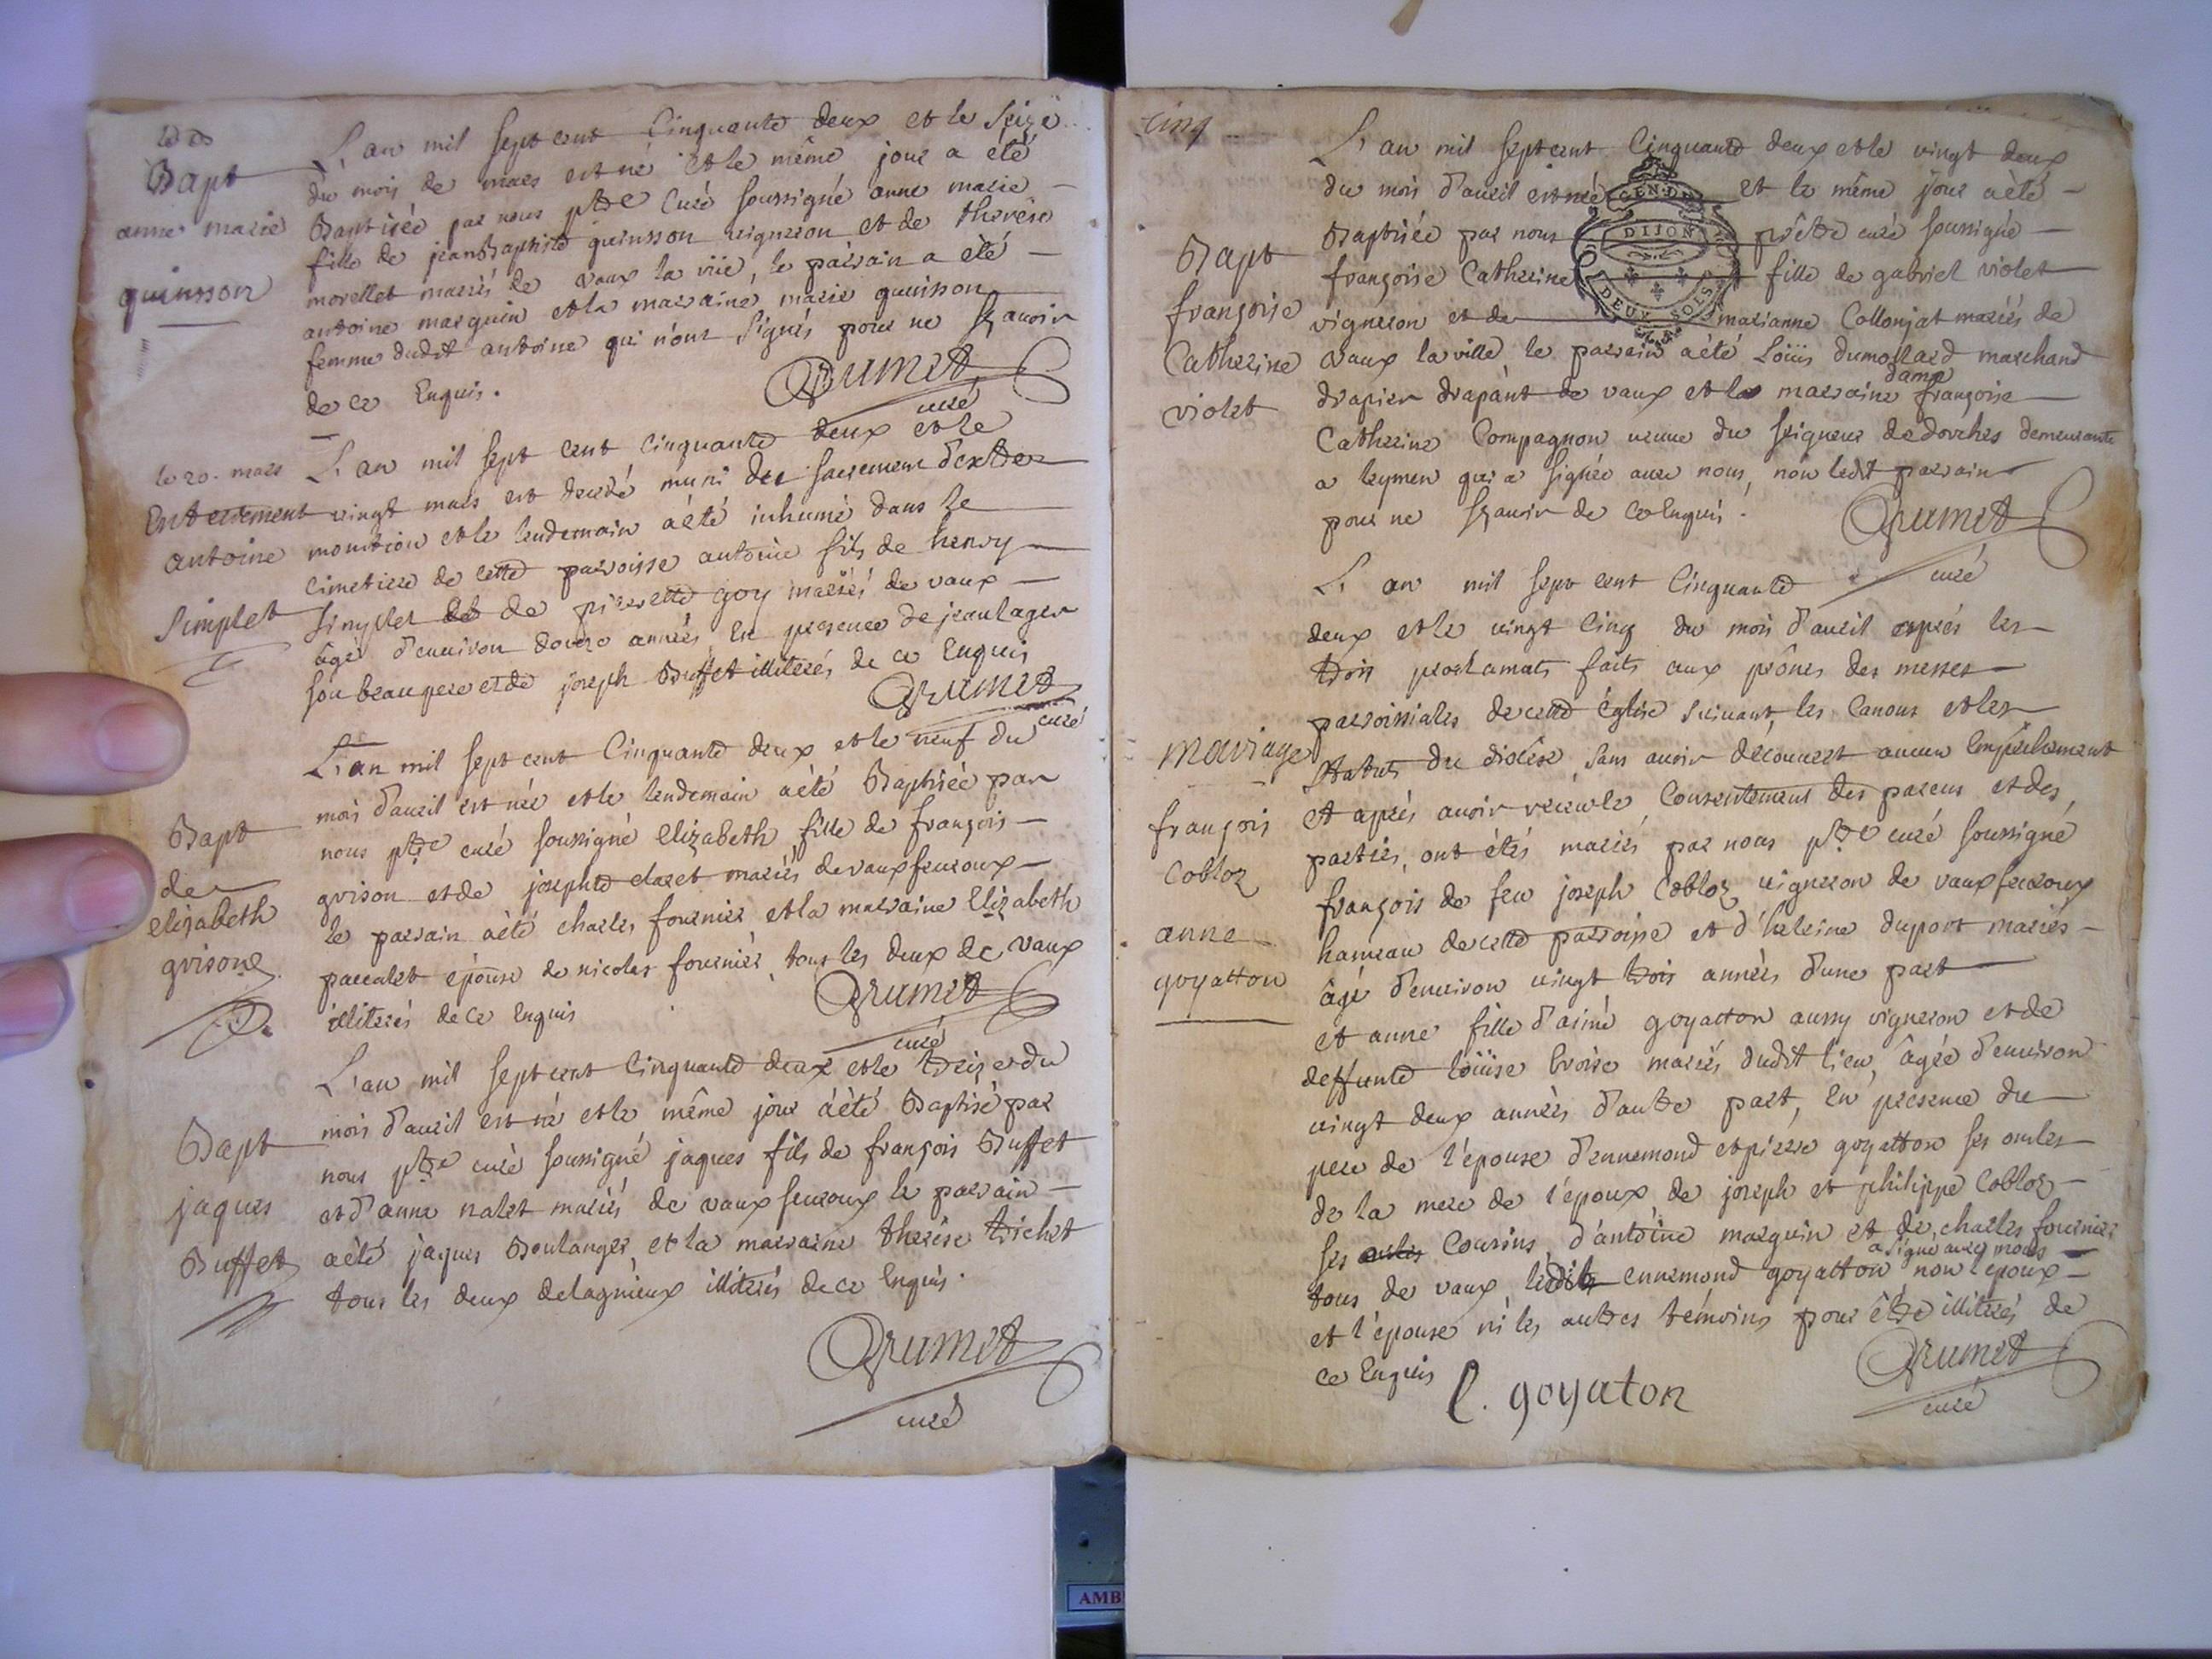 Bapt
anne marie
quinsson
L'an mil sept cent Cinquante deux et le seize
du mois de mars est né et le même jour a été
Baptisée par nous ptre Curé soussigné anne marie
fille de jean Baptiste quinsson vigneron et de therese
morellet mariés de vaux la vile, le parrain a été
antoine marguin et la marraine marie quinson
femme dudit antoine qui n'ont signés pour ne sçavoir
de ce Enquis.
Grumet
curé
le 20. mars
Enterrement
antoine
Simplet
L'an mil sept cent Cinquante deux et le
vingt mars est decedé muni des sacrement d'extre
monction et le lendemain a été inhumé dans le
cimetiere de cette parroisse antoine fils de henry
Simplet et de pierrette goy mariés de vaux
âgé d'environ douze années, En presence de jean lager
son beau pere et de joseph Buffet illiterés de ce Enquis
Grumet
curé
Bapt
de
elizabeth
grisone
L'an mil sept cent Cinquante deux et le neuf du
mois d'avril est née et le lendemain a été Baptisée par
nous ptre curé soussigné elizabeth fille de françois
grison et de josephte claret mariés de vaux fevroux
le parrain a été charles fournier et la marraine Elizabeth
paccalet epouse de nicolas fournier, tous les deux de vaux
illiterés de ce Enquis
Grumet
curé
Bapt
jaques
Buffet
L'an mil sept cent Cinquante deux et le treize du
mois d'avril est né et le même jour a été Baptisé par
nous ptre curé soussigné jaques fils de françois Buffet
et d'anne nalet mariés de vaux fevroux le parrain
a été jaques Boulanger et la marraine therese trichet
tous les deux de lagnieux illiterés de ce Enquis.
Grumet
curé
cinq
GEN DE
DIJON
DEUX SOLS
Bapt
françoise
Catherine
violet
L'an mil sept cent Cinquante deux et le vingt deux
du mois d'avril est née et le même jour a été
Baptisée par nous prêtre curé soussigné
françoise Catherine fille de gabriel violet
vigneron et de marianne Collonjat mariés de
vaux la ville le parrain a été Loüis dumollard marchand
drapier drapant de vaux et la marraine dame françoise
Catherine Compagnon veuve du seigneur de dorches demeurante
a leymen qui a signée avec nous, non ledit parrain
pour ne sçavoir de ce Enquis.
Grumet
curé
mariage
françois
Cobloz
anne
goyatton
L'an mil sept cent Cinquante
deux et le vingt Cinq du mois d'avril après les
trois proclamats faits aux prônes des messes
parroissiales de cette église suivant les Canons et les
statuts du diocése, sans avoir découvert aucun Empechement
et après avoir receu le Consentement des parens et des
parties, ont étés mariés par nous ptre curé soussigné
françois de feu joseph Cobloz vigneron de vaux fevroux
hameau de cette parroisse et d'heleine duport mariés
âgé d'environ vingt trois années d'une part
et anne fille d'aimé goyatton aussy vigneron et de
deffunte loüise broise mariés dudit lieu, âgée d'environ
vingt deux années d'autre part, En presence du
pere de l'épouse d'ennemond et pierre goyatton ses oncles
de la mere de l'époux de joseph et philippe Cobloz
ses Cousins, d'antoine marguin et de charles fournier
tous de vaux, ledit ennemond goyatton a signé avec nous non l'époux
et l'épouse ni les autres témoins pour être illiterés de
ce Enquis
Grumet
curé
l. goyaton